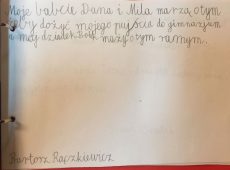 Moje babcie Dana i Mila marzą o tym
żeby dożyć mojego pujścia do gimnazjum
a mój dziadek Bolek maży o tym samym.
Bartosz Rączkiewicz